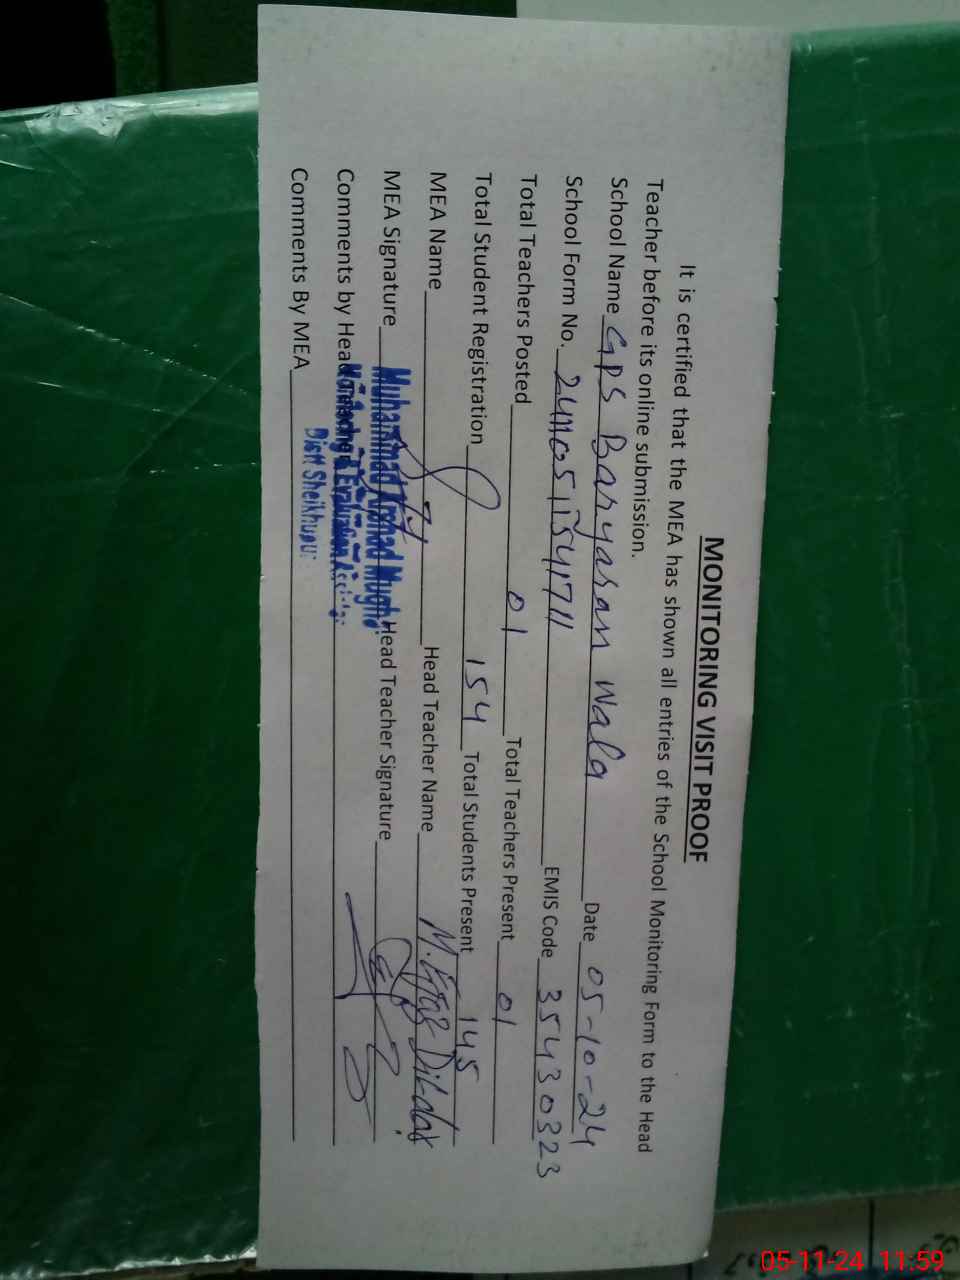 MONITORING VISIT PROOF
It is certified that the MEA has shown all entries of the School Monitoring Form to the Head
Teacher before its online submission.
School Name GPS Baryasan Wala Date 05-10-24
School Form No. EMIS Code 35430323
Total Teachers Posted 01 Total Teachers Present 01
Total Student Registration 154 Total Students Present 145
MEA Name Head Teacher Name M. Dildar
MEA Signature Head Teacher Signature
Muhammad Arshad Mughal
Comments by Head
Monitoring & Evaluation Assistant
Comments By MEA
Distt Sheikhupu
05-11-24 11:59